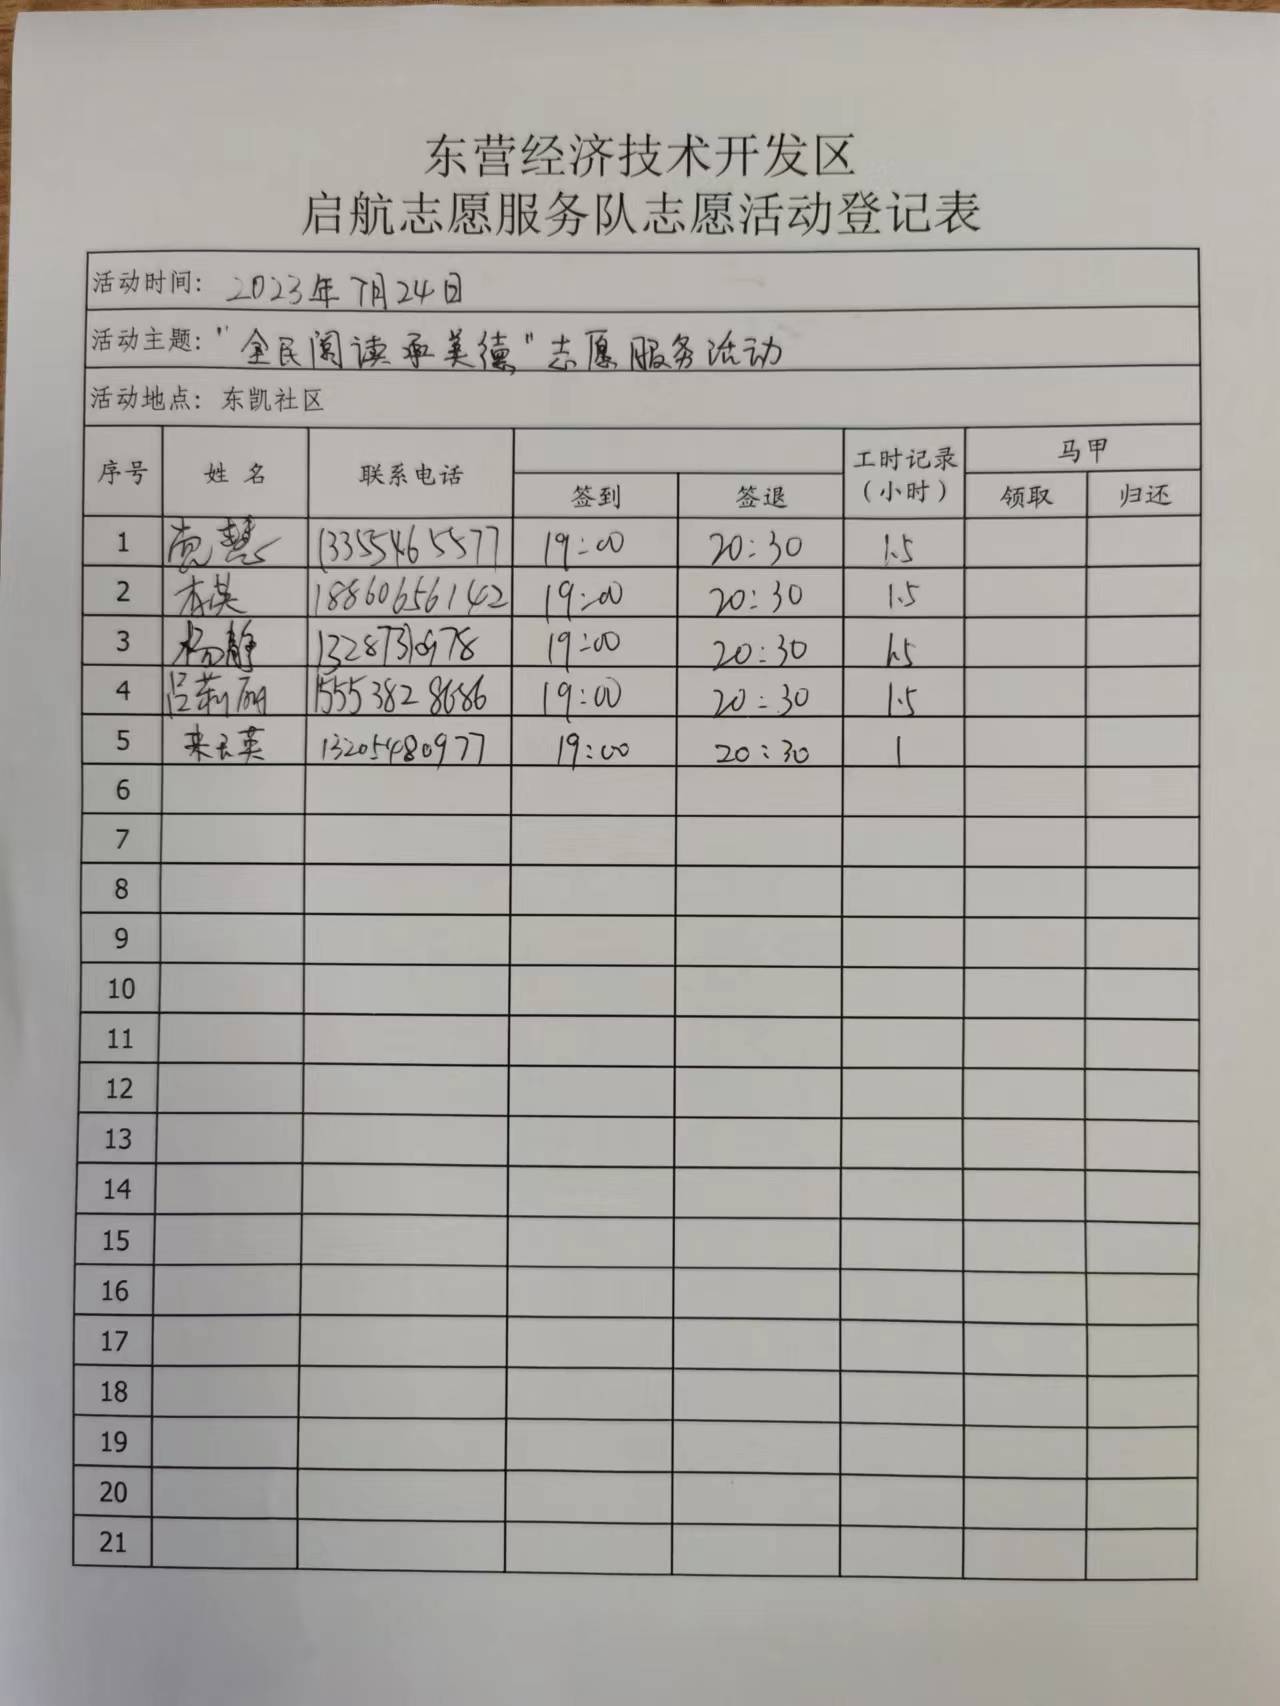 东营经济技术开发区
启航志愿服务队志愿活动登记表
活动时间: 2023年7月24日
活动主题: "全民阅读承美德"志愿服务活动
活动地点: 东凯社区
序号 姓名 联系电话 签到 签退 工时记录(小时) 马甲 领取 归还
1 慧 13355465577 19:00 20:30 1.5
2 英 18860656142 19:00 20:30 1.5
3 杨静 19:00 20:30 1.5
4 吕莉丽 15553828686 19:00 20:30 1.5
5 英 13205480977 19:00 20:30 1
6
7
8
9
10
11
12
13
14
15
16
17
18
19
20
21